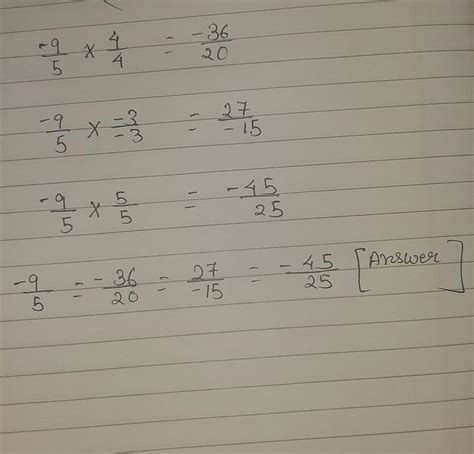 -9/5 × 4/4 = -36/20
-9/5 × -3/-3 = 27/-15
-9/5 × 5/5 = -45/25
-9/5 = -36/20 = 27/-15 = -45/25 [Answer]